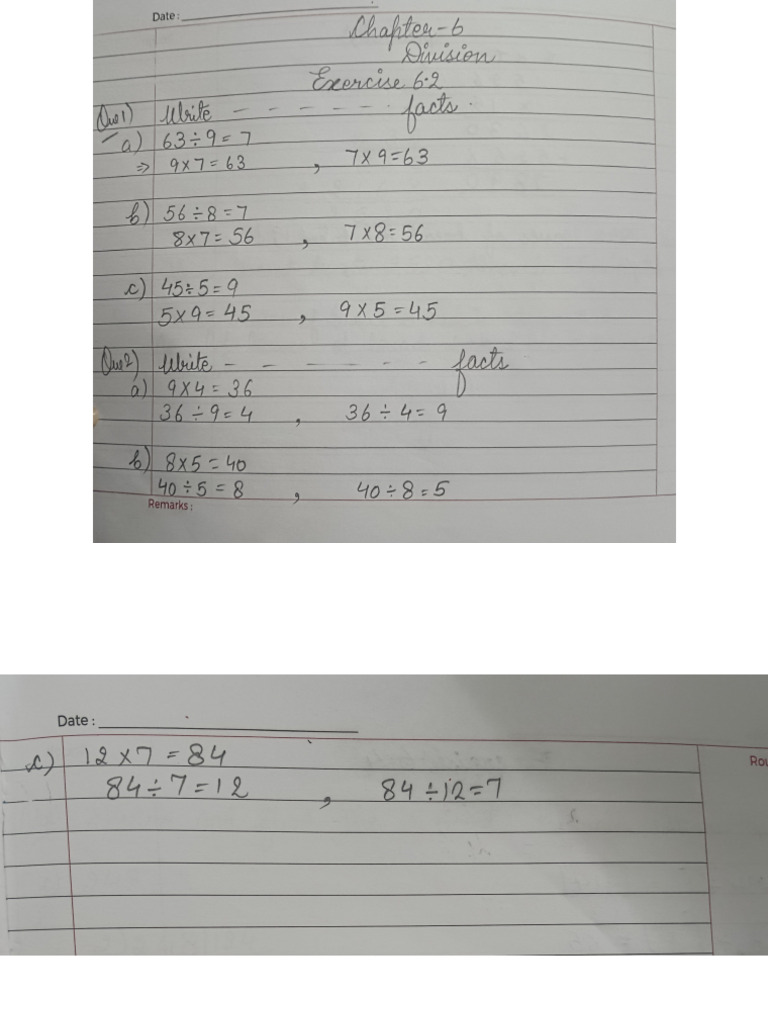 Date :
Chapter-6
Division
Exercise 6.2
Que1) Write - - - - - - facts.
a) 63÷9=7
⇒ 9×7=63 , 7×9=63
b) 56÷8=7
8×7=56 , 7×8=56
c) 45÷5=9
5×9=45 , 9×5=45
Que2) Write - - - - - - - facts
a) 9×4=36
36÷9=4 , 36÷4=9
b) 8×5=40
40÷5=8 , 40÷8=5
Remarks :
Date :
c) 12×7=84
Rou
84÷7=12 , 84÷12=7